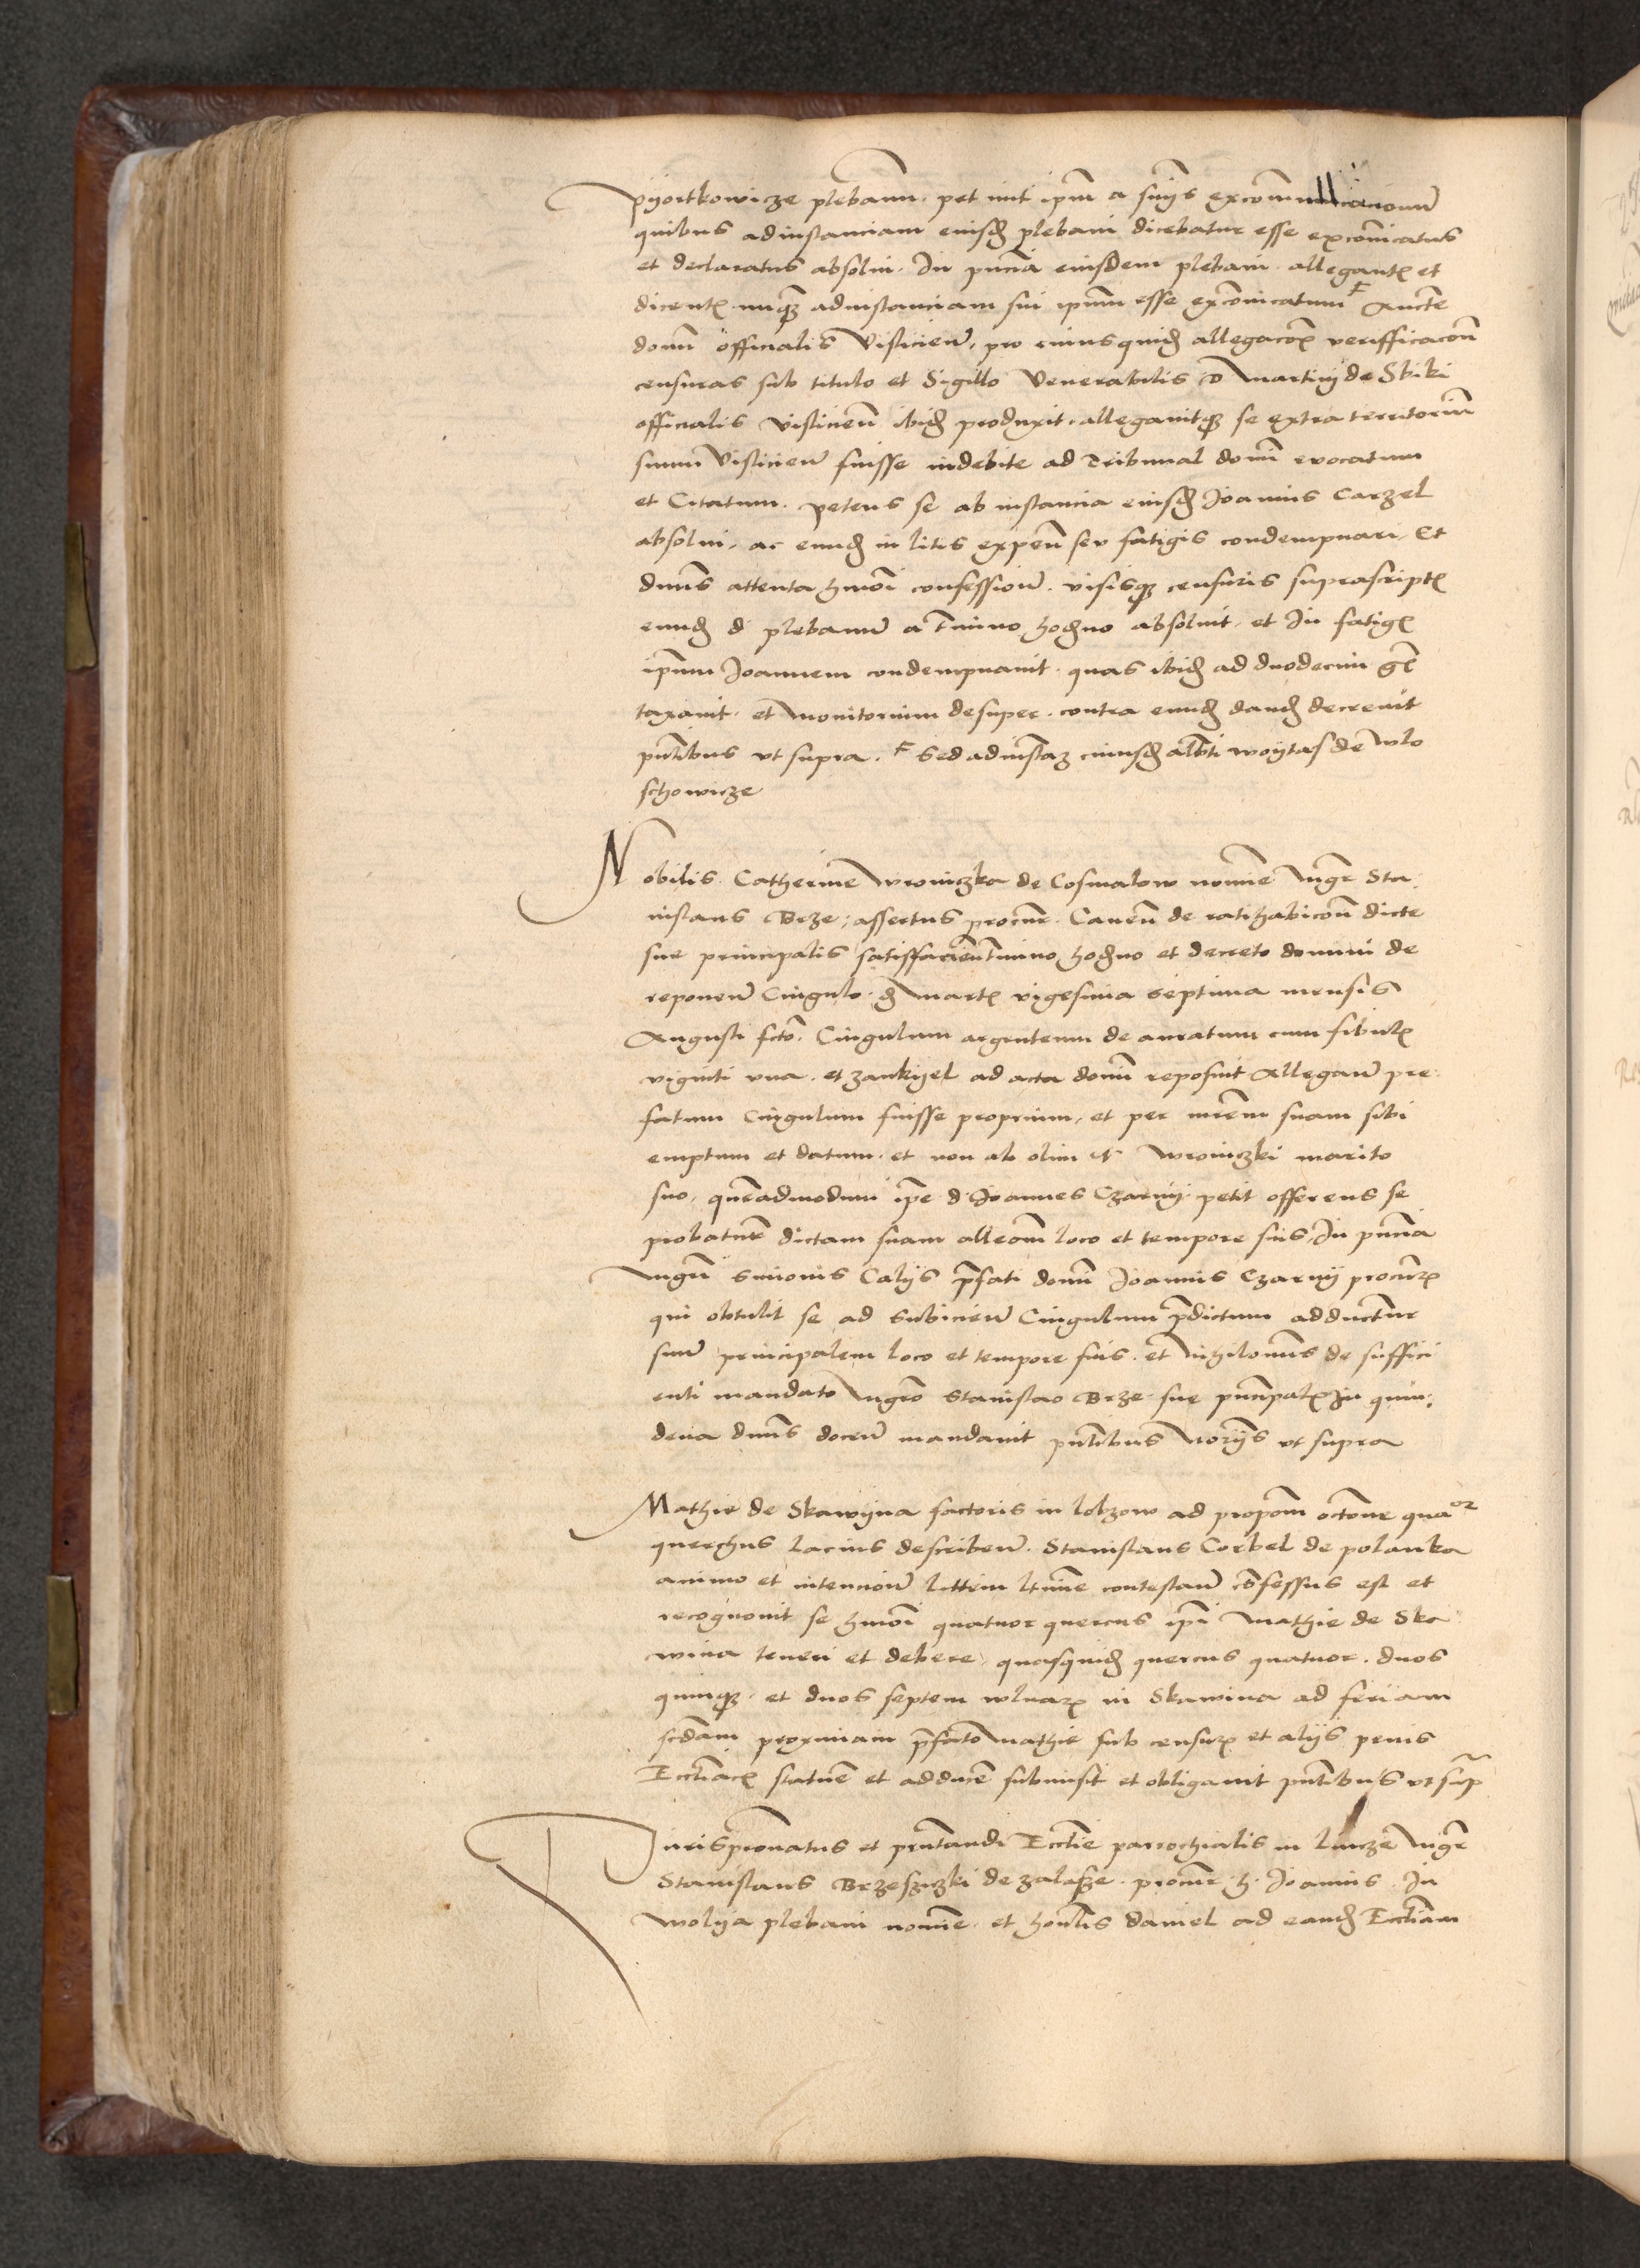 pyortkowicze plebanū. petiuit ipm̄ a snijs excommunicacionū
quibus ad instanciam eiusd plebani dicebatur esse excōicatus
et declaratus absolui. In pn̄cia eiusdem plebani allegantꝭ et
dicentꝭ nunqꝫ ad instanciam sui ipsum esse excōicatum F Aucte
domī officialis Visliciēn, pro cuius quid allegacoꝭ verifficacoē
censuras sub titulo et Sigillo Venerabilis D Martini de Skiki
officialis visliciēn ibid produxit. allegauitqꝫ se extra territoriū
suum visliciēn fuisse indebite ad Tribunal domī euocatum
et Citatum. petens se ab instancia eiusd Joannis Carzel
absolui. ac eund in litis expeñ seu fatigis condempnari. Et
dn̄us attenta hmōi confessione. visisqꝫ censuris suprascriptꝭ
eund d plebanū a tmino hodno absoluit. et In fatigꝭ
ipsum Joannem condempnauit. quas ibid ad duodecim gꝭ
taxauit. et Monitorium desuper. contra eund dand decreuit
pn̄tibus vt supra. F sed ad instaꝫ cuiusd albti woytas de wlo
schowicze
Nobilis Catherine Wroniczka de Cosmalow nomīe Mgr Sta
nislaus Brze. assertus procur. Caueñ de ratihabicoē dicte
sue principalis satisfacieñ tmino hodno et decreto domini de
reponeñ Cingulo. d Martꝭ vigesima septima mensis
Augusti fcto. Cingulum argenteum de auratum cum fibulꝭ
viginti vna. et zankyel ad acta domī reposuit Allegañ pre
fatum Cingulum fuisse proprium, et per mrēm suam sibi
emptum et datum. et non ab olim N Wroniczki marito
suo. quēadmodum ipse d. Joannes Czarny petit offerens se
probaturū dictam suam alleōm loco et tempore suis. In pn̄cia
Mgri Simonis Calijs pfati domī Joannis Czarny procurꝭ
qui obtulit se ad subicieñ Cingulum pdictum adducturū
suū principalem loco et tempore suis. et Nihilomīs de suffici
enti mandato Mgro Stanislao Brze. sue pn̄cipalꝭ In quin
dena dn̄us doceñ mandauit pn̄tibus Notijs vt supra
Mathie de Skawyna factoris in lobzow ad propoēm octoue quaor
querchus lacius describeñ. Stanislaus Corbel de polanka
animo et intencione littem ltime contestañ cōfessus est et
recognouit se hmōi quatuor quercus ipsi Mathie de Ska
wina teneri et debere. quasquid quercus quatuor. duos
quinqꝫ. et duos septem vlnarꝭ in Skawina ad feriam
scdam proximam pfato Mathie sub censurꝭ et alijs penis
Eccliacꝭ statuē et adducē submisit et obligauit pn̄tibus vt sup
Jurispronatus et pn̄tandi Ecclie parrochialis in luncze Mgr
Stanislaus Brzeszczki de zalasze. procur. h. Joannis In
wolya plebani nomīe. et honlis daniel ad eand Eccliam